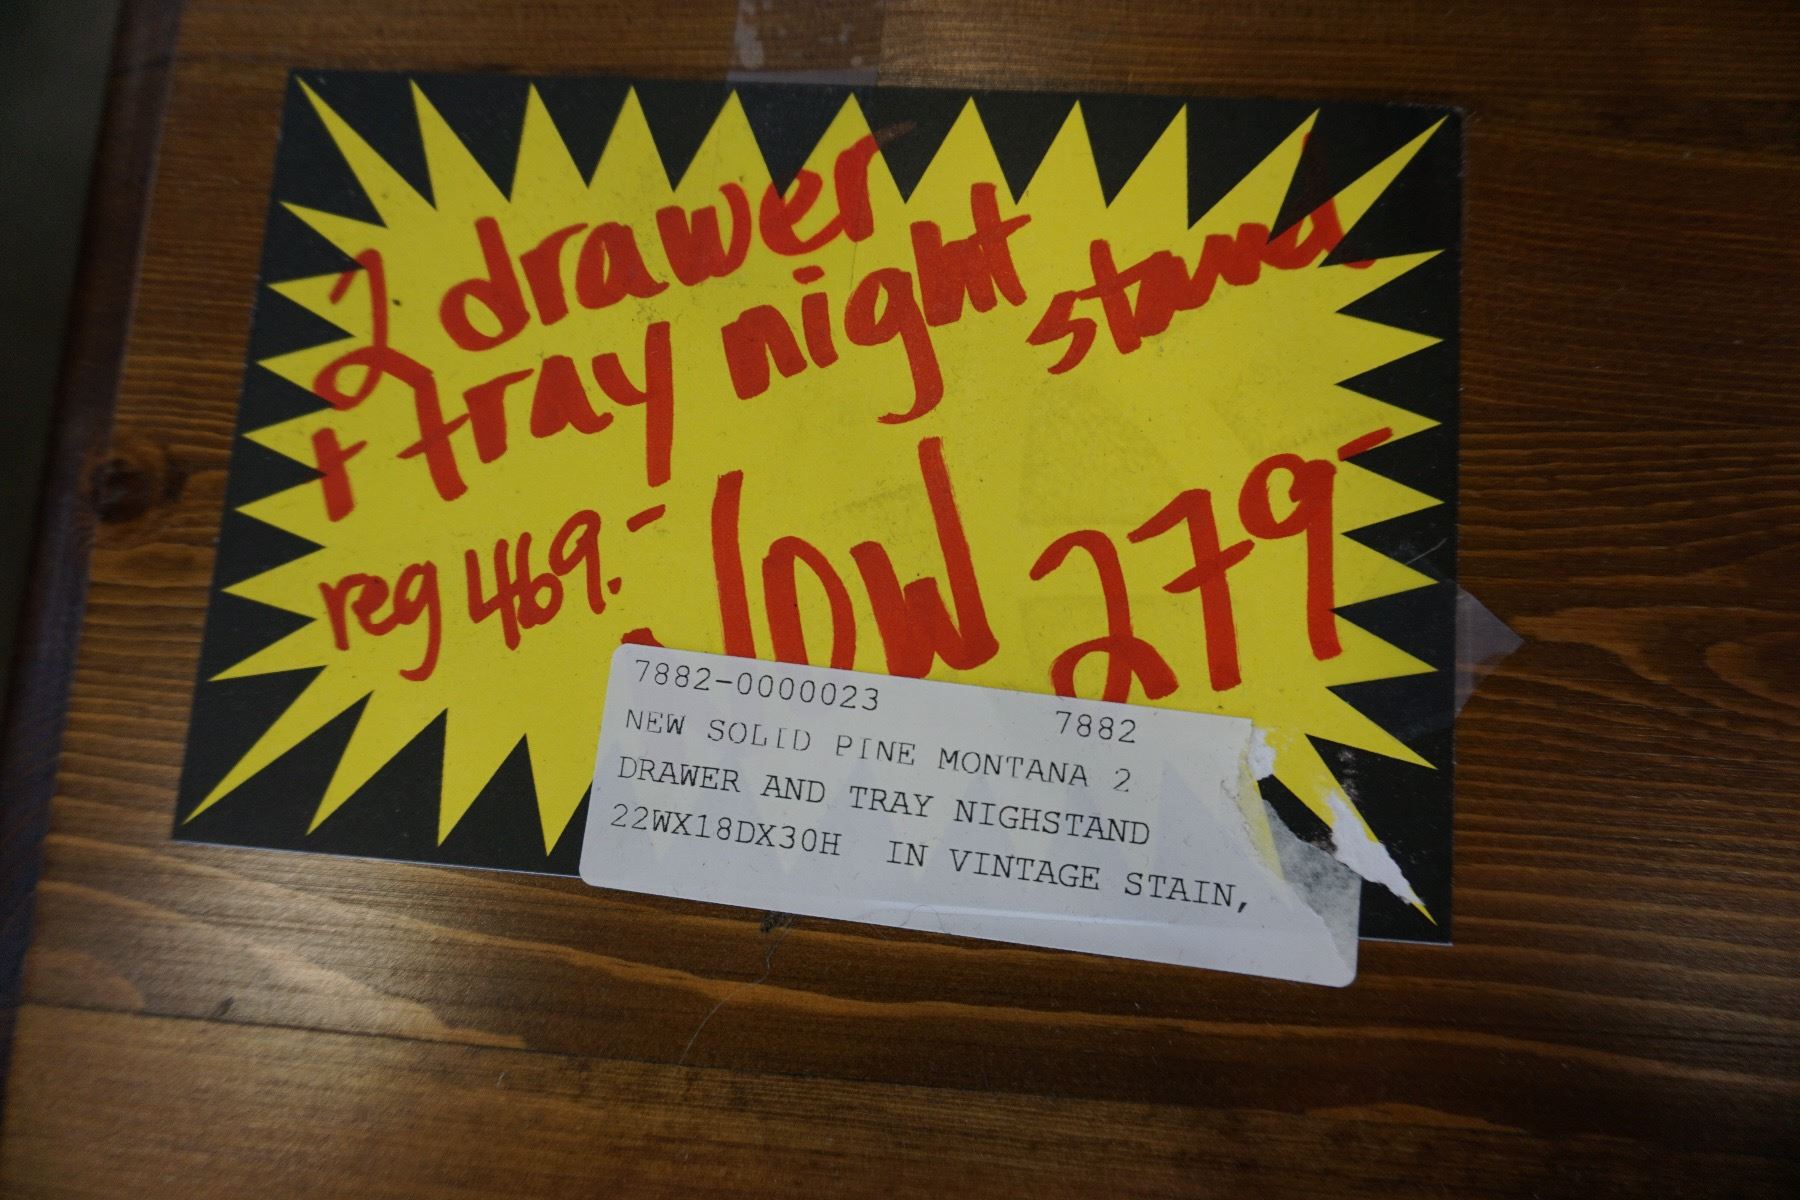 2 drawer
+ tray night stand
reg 469.- NOW 279-
7882-0000023 7882
NEW SOLID PINE MONTANA 2
DRAWER AND TRAY NIGHSTAND
22WX18DX30H IN VINTAGE STAIN,